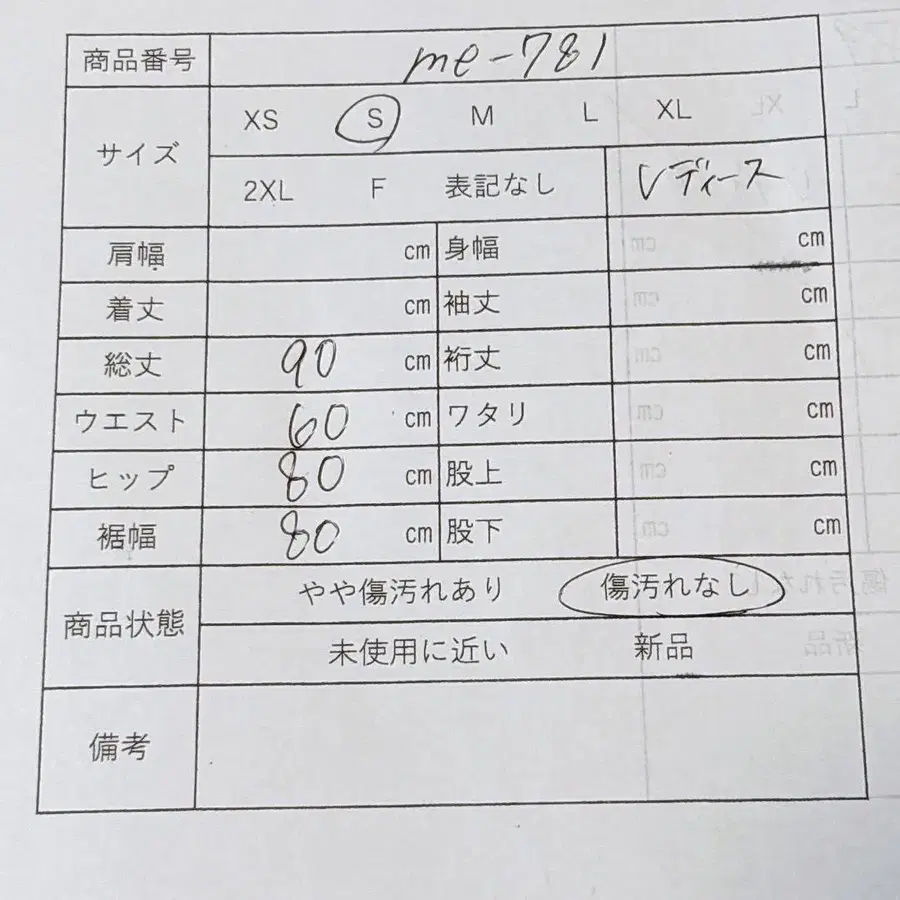 商品番号 me-781
サイズ XS S M L XL
2XL F 表記なし レディース
肩幅 cm 身幅 cm
着丈 cm 袖丈 cm
総丈 90 cm 裄丈 cm
ウエスト 60 cm ワタリ cm
ヒップ 80 cm 股上 cm
裾幅 80 cm 股下 cm
商品状態 やや傷汚れあり 傷汚れなし
未使用に近い 新品
備考